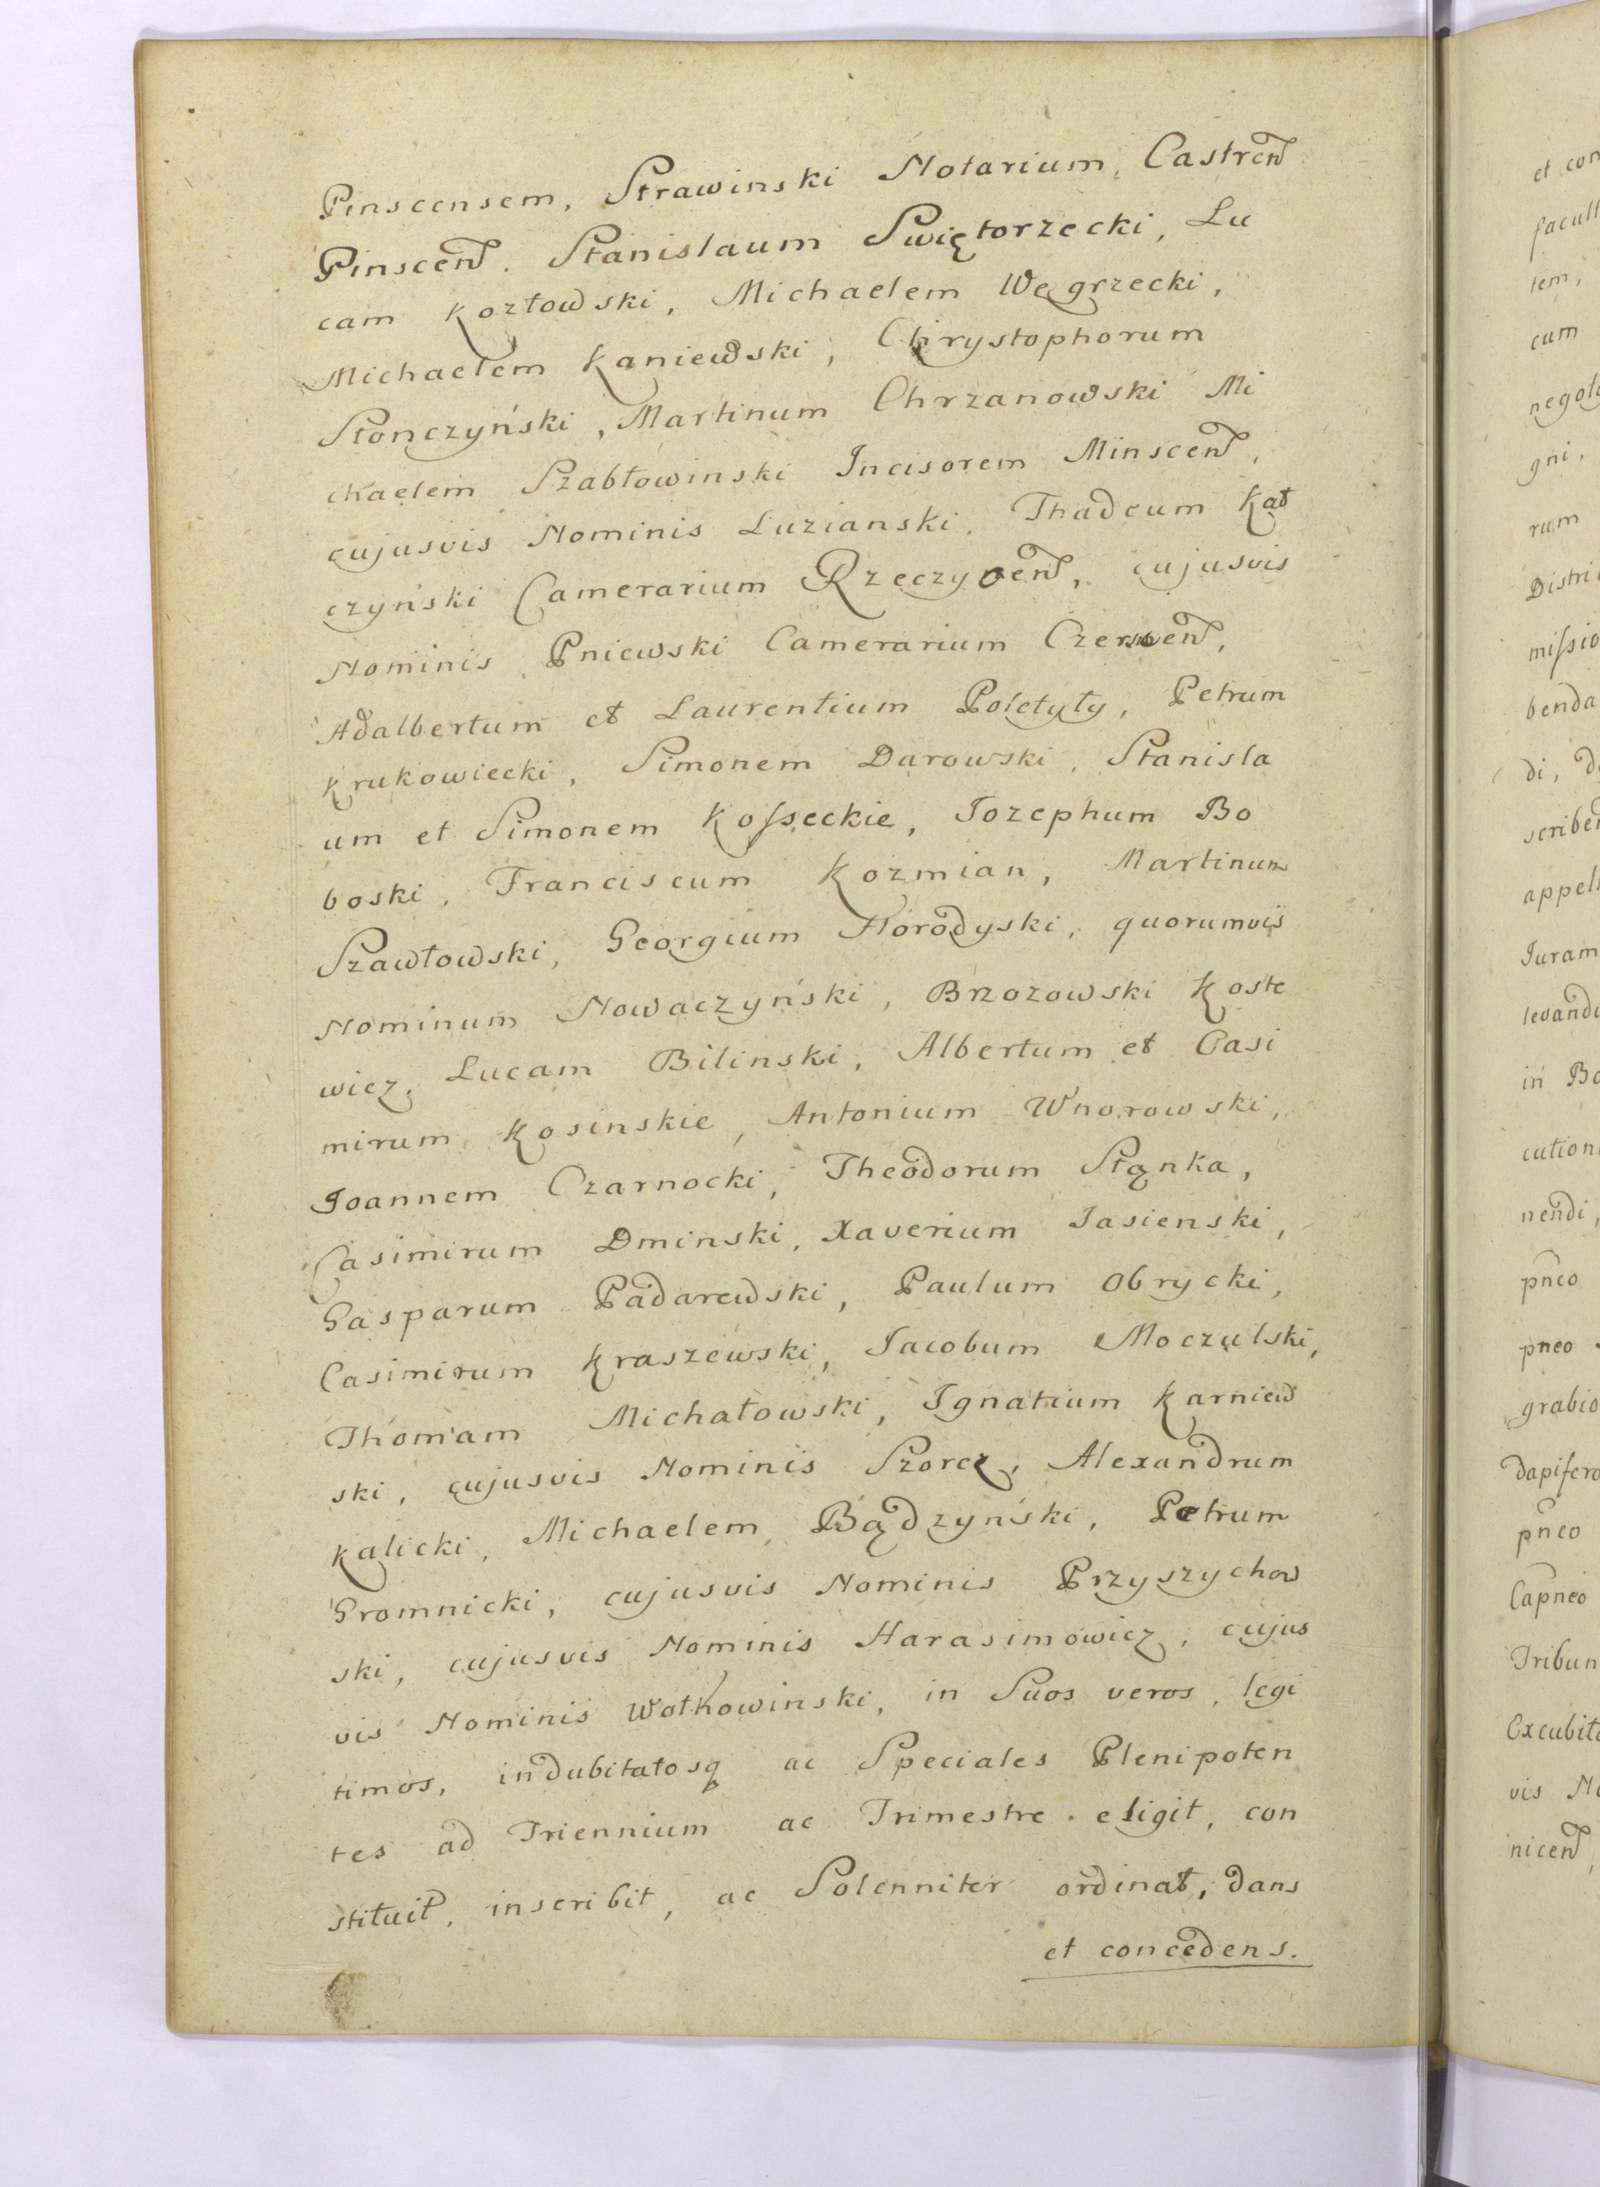 Pinscensem, Strawinski Notarium, Castren
Pinscen. Stanislaum Swiętorzecki, Lu
cam Kozłowski, Michaelem Węgrzecki,
Michaelem Kaniewski, Chrystophorum
Słonczyński, Martinum Chrzanowski Mi
chaelem Szabłowinski Incisorem Minscen,
cujusvis Nominis Luzianski, Thadeum Kał
czyński Camerarium Rzeczycen, cujusvis
Nominis Pniewski Camerarium Czerscen,
Adalbertum et Laurentium Poletyły, Petrum
Krukowiecki, Simonem Darowski, Stanisla
um et Simonem Kosseckie, Jozephum Bo
boski, Franciscum Kozmian, Martinum
Szawłowski, Georgium Horodyski, quorumvis
Nominum Nowaczyński, Brzozowski Koste
wicz, Lucam Bilinski, Albertum et Casi
mirum Kosinskie, Antonium Wnorowski,
Joannem Czarnocki, Theodorum Stąnka,
Casimirum Dminski, Xaverium Jasienski,
Gasparum Padarewski, Paulum Obrycki,
Casimirum Kraszewski, Jacobum Moczulski,
Thomam Michałowski, Ignatium Karniew
ski, cujusvis Nominis Szorcz, Alexandrum
Kalicki, Michaelem Bądzyński, Petrum
Gromnicki, cujusvis Nominis Przyszychow
ski, cujusvis Nominis Harasimowicz, cujus
vis Nominis Wołkowinski, in Suos veros, legi
timos, indubitatosq ac Speciales Plenipoten
tes ad Triennium ac Trimestre eligit, con
stituit, inscribit, ac Solenniter ordinat, dans
et concedens.
et con
facult
tem,
cum
negoty
gni,
rum
Distri
missio
benda
di, d
scriben
appell
Juram
levandu
in Bo
cution
nendi,
pneo
pneo
grabio
dapifero
pneo
Capneo
Tribun
Excubito
vis No
nicen,